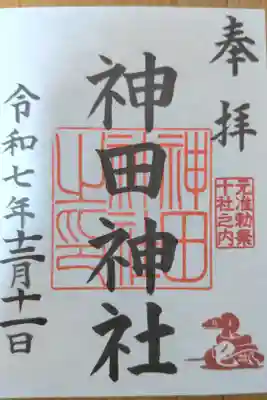 奉拝
元准勅祭
十社之内
神田神社
神田神社之印
巳
令和七年十二月十一日